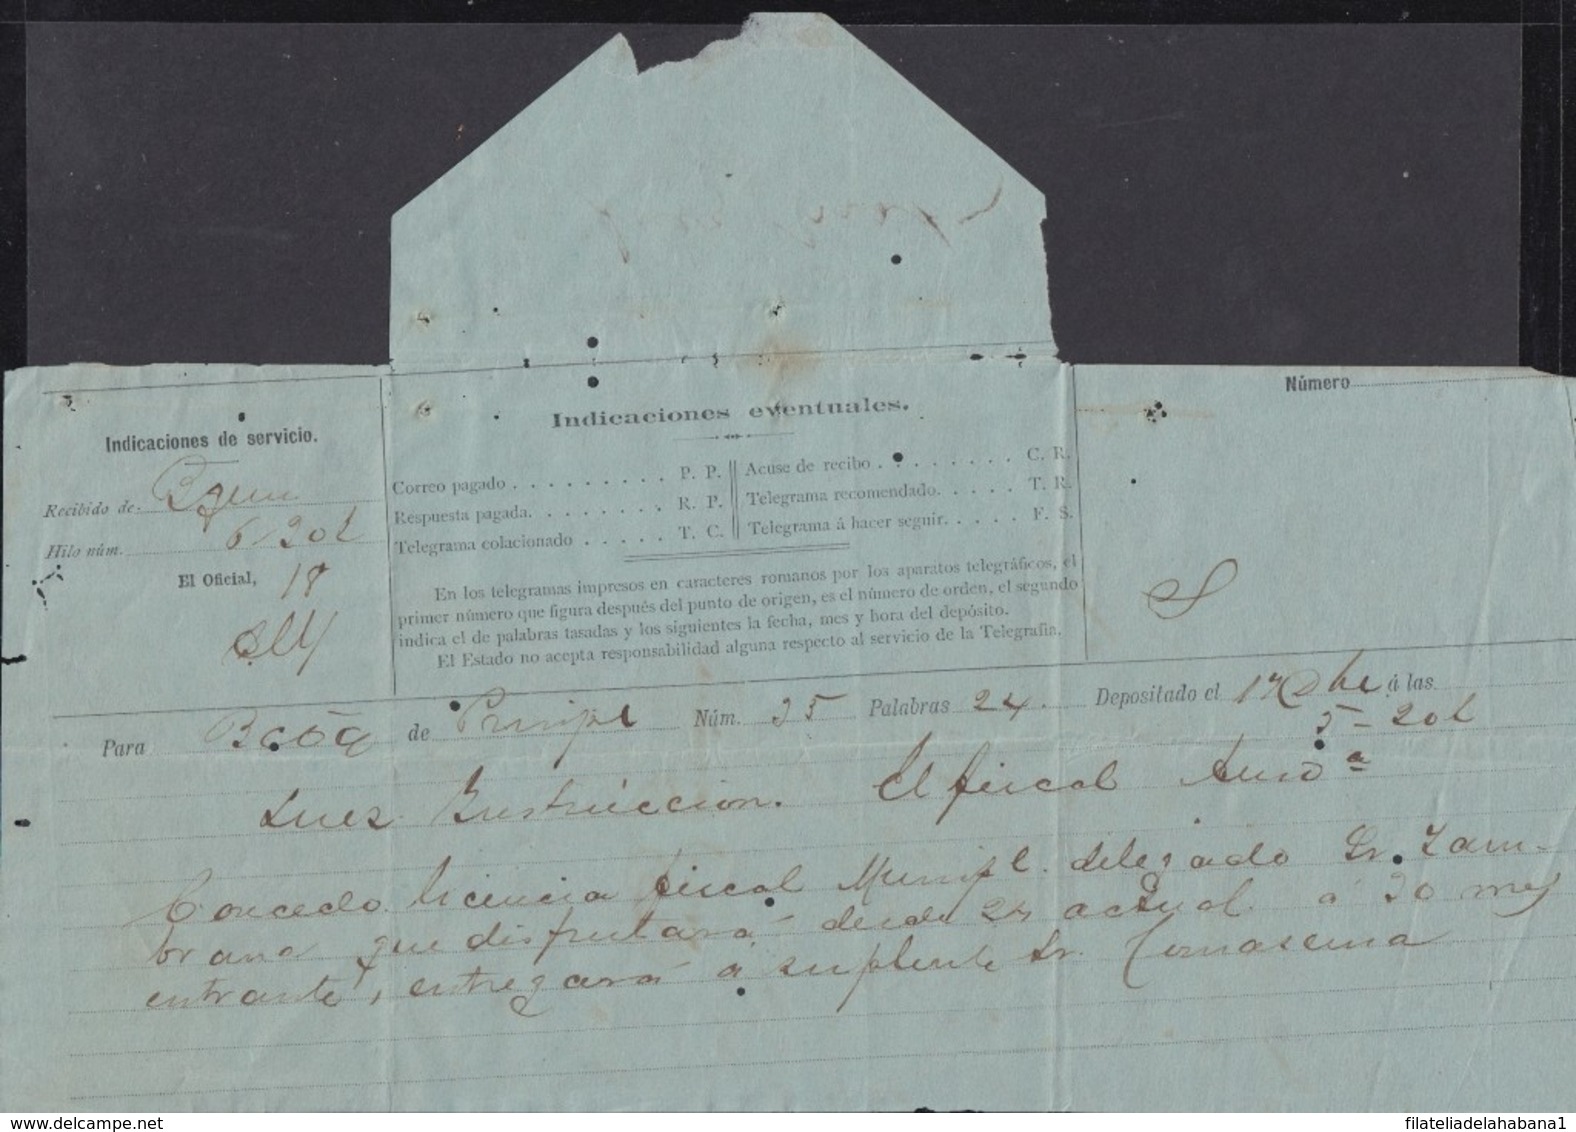 Número
Indicaciones de servicio.
Indicaciones eventuales.
Recibido de:
Hilo núm. 6-20t
El Oficial, 18
Correo pagado . . . . . . . . . P. P.
Respuesta pagada. . . . . . . . R. P.
Telegrama colacionado . . . . . T. C.
Acuse de recibo . . . . . . . . C. R.
Telegrama recomendado. . . . . T. R.
Telegrama á hacer seguir. . . . . F. S.
En los telegramas impresos en caracteres romanos por los aparatos telegráficos, el
primer número que figura después del punto de origen, es el número de orden, el segundo
indica el de palabras tasadas y los siguientes la fecha, mes y hora del depósito.
El Estado no acepta responsabilidad alguna respecto al servicio de la Telegrafía.
Para de Principe Núm. 35 Palabras 24. Depositado el 17 Dbe á las
5-20t
Juez Instruccion. El fiscal Auda
Concedo licencia fiscal Municipl. delegado Sr. Zam-
brana que disfrutará desde 24 actual á 20 mes
entrante, entregará á suplente Sr. Tomasena
filateliadelahabana1
delcampe.net